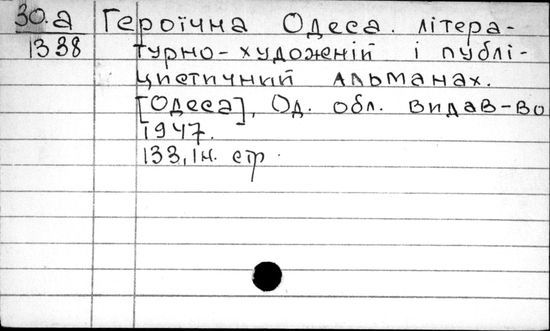 30.а Героїчна Одеса. літера-
1338 турно-художній і публі-
цистичний альманах.
[Одеса], Од. обл. видав-во
1947.
133, 1н. стр.